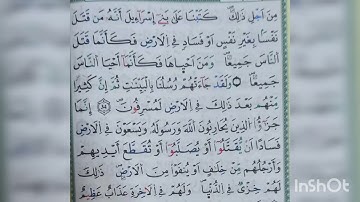 مِنْ اَجْلِ ذٰلِكَ ۛ كَتَبْنَا عَلٰى بَنٖٓي اِسْرَٓاء۪يلَ اَنَّهُ مَنْ قَتَلَ
نَفْسًا بِغَيْرِ نَفْسٍ اَوْ فَسَادٍ فِي الْاَرْضِ فَكَاَنَّمَا قَتَلَ
النَّاسَ جَم۪يعًا ۜ وَمَنْ اَحْيَاهَا فَكَاَنَّمَٓا اَحْيَا النَّاسَ
جَم۪يعًا ۜ وَلَقَدْ جَٓاءَتْهُمْ رُسُلُنَا بِالْبَيِّنَاتِ ثُمَّ اِنَّ كَث۪يرًا
مِنْهُمْ بَعْدَ ذٰلِكَ فِي الْاَرْضِ لَمُسْرِفُونَ اِنَّمَا
جَزٰٓؤُا الَّذ۪ينَ يُحَارِبُونَ اللّٰهَ وَرَسُولَهُ وَيَسْعَوْنَ فِي الْاَرْضِ
فَسَادًا اَنْ يُقَتَّلُٓوا اَوْ يُصَلَّبُٓوا اَوْ تُقَطَّعَ اَيْد۪يهِمْ
وَاَرْجُلُهُمْ مِنْ خِلَافٍ اَوْ يُنْفَوْا مِنَ الْاَرْضِ ۜ ذٰلِكَ
لَهُمْ خِزْيٌ فِي الدُّنْيَا وَلَهُمْ فِي الْاٰخِرَةِ عَذَابٌ عَظ۪يمٌ
InShot